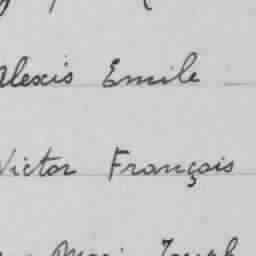 Alexis Emile
Victor François
Joseph